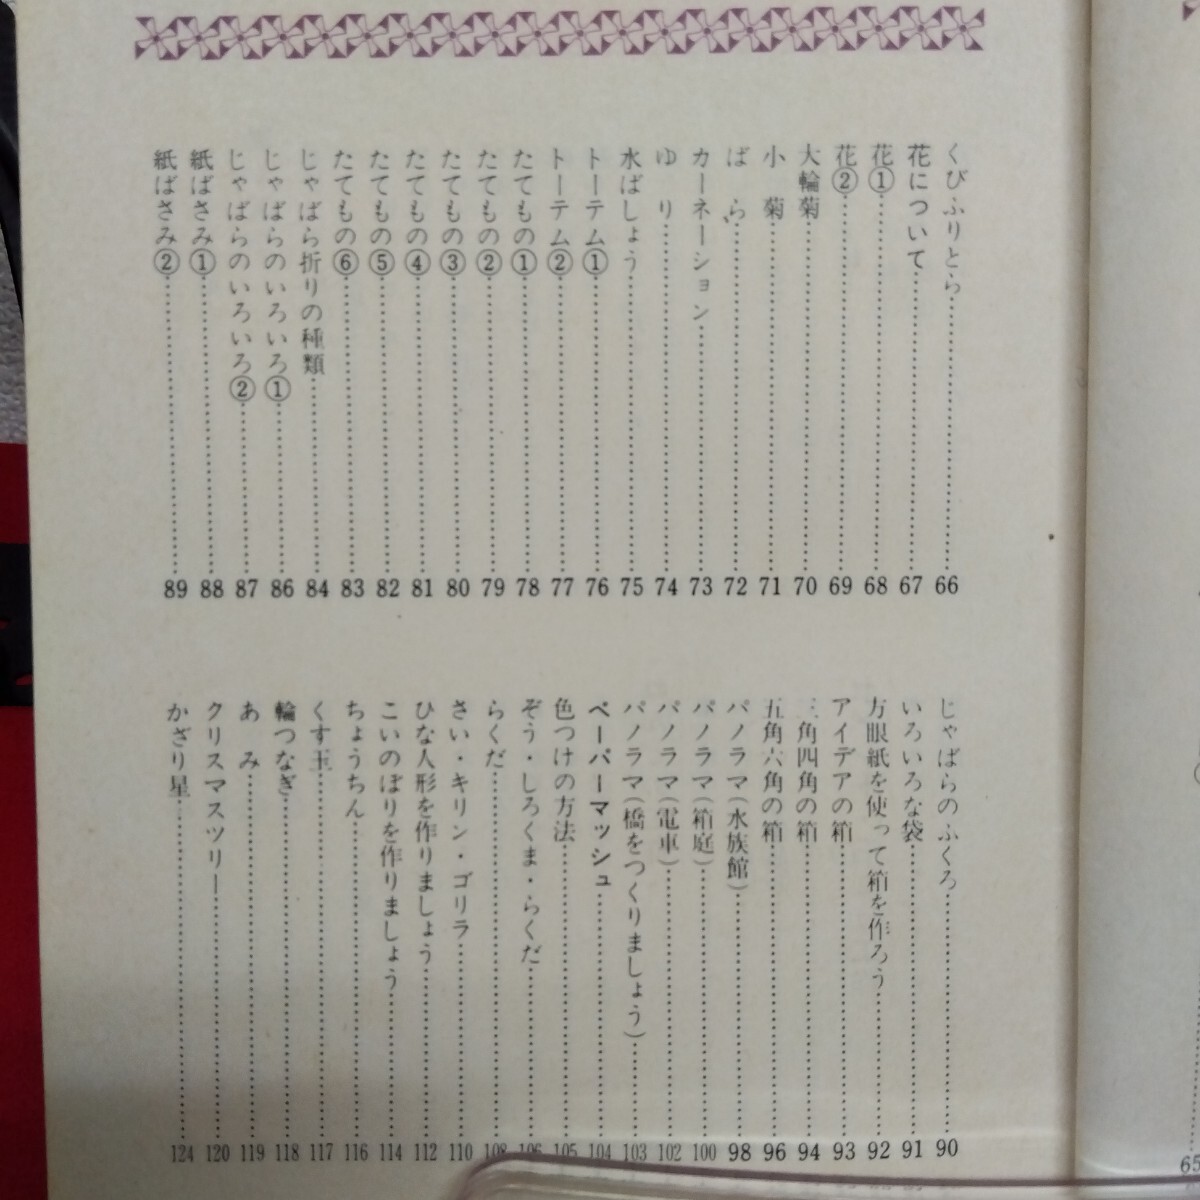 くびふりとら……66
花について……67
花①……68
花②……69
大輪菊……70
小菊……71
ばら……72
カーネーション……73
ゆり……74
水ばしょう……75
トーテム①……76
トーテム②……77
たてもの①……78
たてもの②……79
たてもの③……80
たてもの④……81
たてもの⑤……82
たてもの⑥……83
じゃばら折りの種類……84
じゃばらのいろいろ①……86
じゃばらのいろいろ②……87
紙ばさみ①……88
紙ばさみ②……89
じゃばらのふくろ……90
いろいろな袋……91
方眼紙を使って箱を作ろう……92
アイデアの箱……93
三角四角の箱……94
五角六角の箱……96
パノラマ(水族館)……98
パノラマ(箱庭)……100
パノラマ(電車)……102
パノラマ(橋をつくりましょう)……103
ペーパーマッシュ……104
色つけの方法……105
ぞう・しろくま・らくだ……106
らくだ……108
さい・キリン・ゴリラ……110
ひな人形を作りましょう……112
こいのぼりを作りましょう……114
ちょうちん……116
くす玉……117
輪つなぎ……118
あみ……119
クリスマスツリー……120
かざり星……124
65